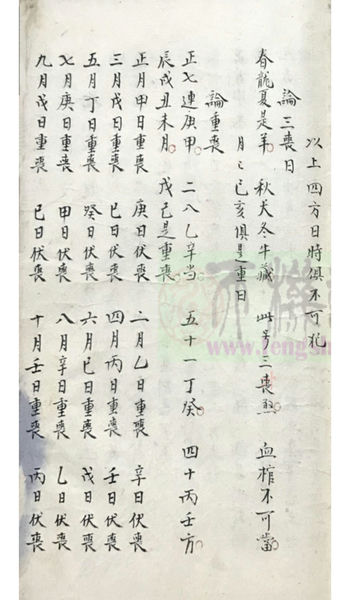 以上四方日時俱不可犯
論三喪日
春龍夏是羊 秋犬冬牛藏 此号三喪煞 血棺不可當
月之巳亥俱是重日
論重喪
正七連庚甲 二八乙辛当 五十一丁癸 四十丙壬方
辰戌丑未月 戊己是重喪
正月甲日重喪 庚日伏喪 二月乙日重喪 辛日伏喪
三月戊日重喪 巳日伏喪 四月丙日重喪 壬日伏喪
五月丁日重喪 癸日伏喪 六月巳日重喪 戊日伏喪
七月庚日重喪 甲日伏喪 八月辛日重喪 乙日伏喪
九月戊日重喪 巳日伏喪 十月壬日重喪 丙日伏喪
www.fengsh